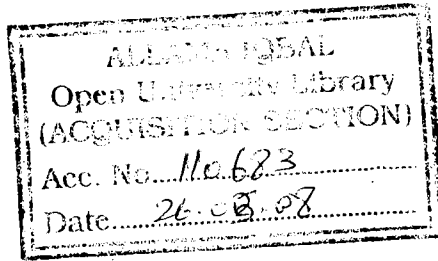 ALLAMA IQBAL
Open University Library
(ACQUISITION SECTION)
Acc. No. 110683
Date 26.